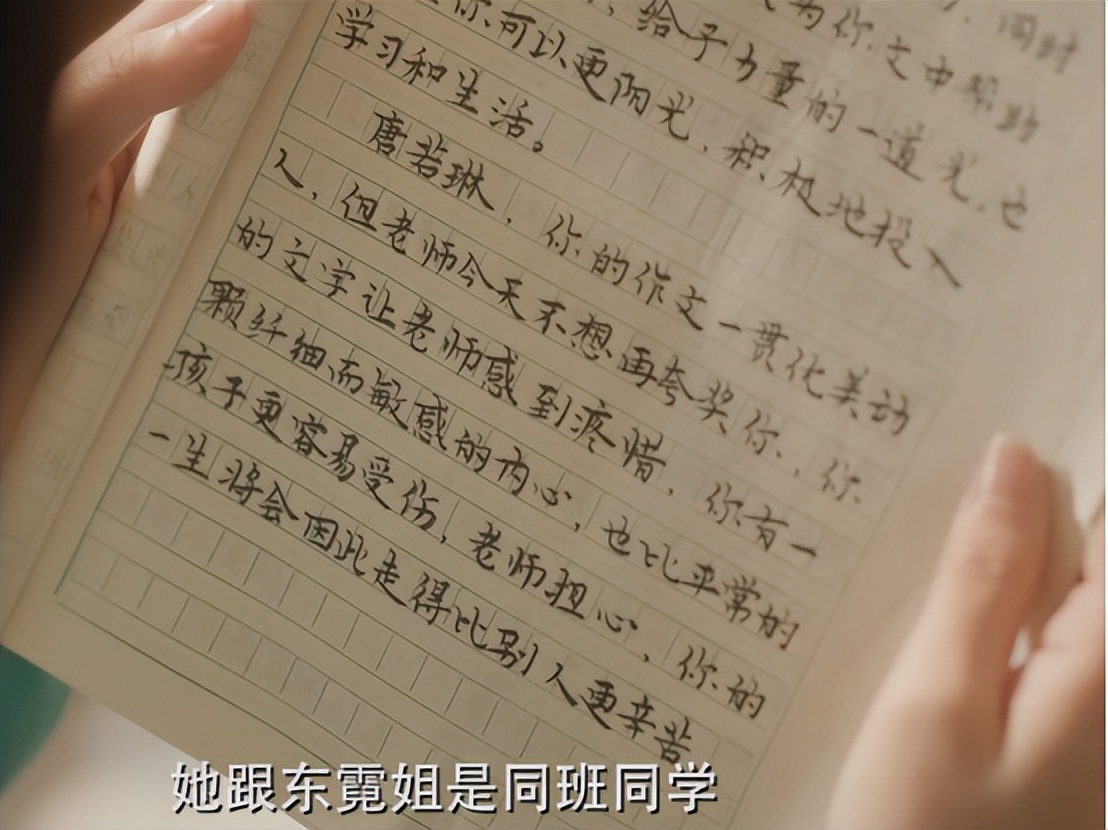 同时
为你文中帮助
，给予力量的一道光，也
你可以更阳光，积极地投入
学习和生活。
唐若琳，你的作文一贯优美动
人，但老师今天不想再夸奖你，你
的文字让老师感到疼惜，你有一
颗纤细而敏感的内心，也比平常的
孩子更容易受伤，老师担心，你的
一生将会因此走得比别人更辛苦
她跟东霓姐是同班同学